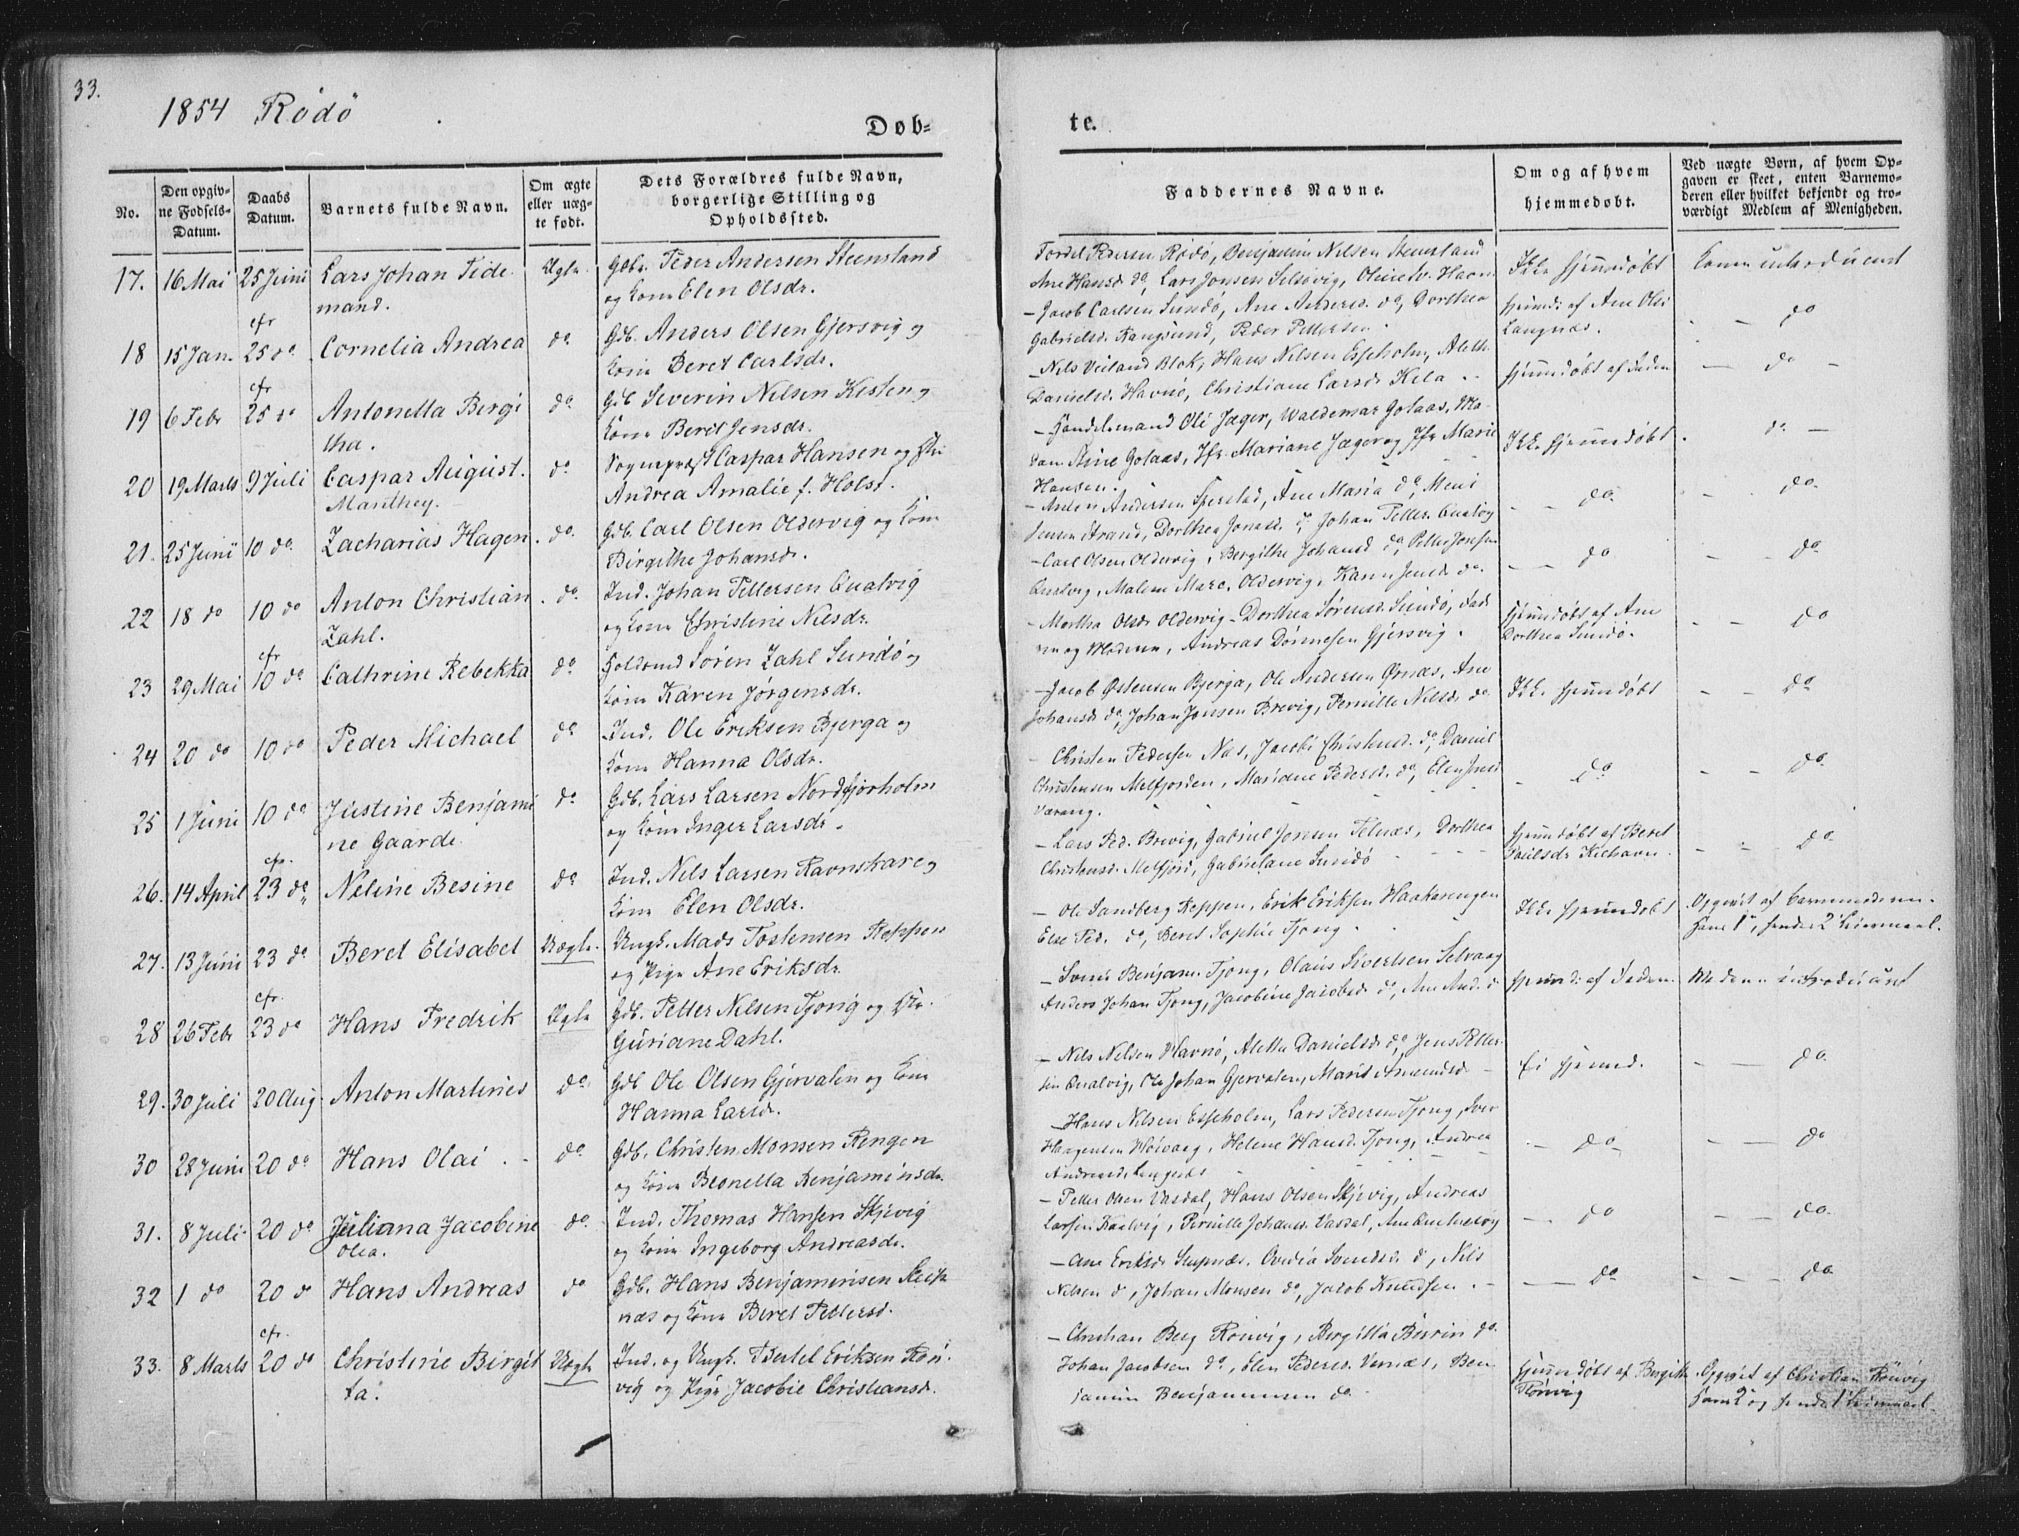 33.
1854 Rødö
Døb-
te.
No.
Den opgiv-
ne Fødsels-
Datum.
Daabs
Datum.
Barnets fulde Navn.
Om ægte
eller uæg-
te født.
Dets Forældres fulde Navn,
borgerlige Stilling og
Opholdssted.
Faddernes Navne.
Om og af hvem
hjemmedøbt.
Ved uægte Børn, af hvem Op-
gaven er skeet, enten Barnemo-
deren eller hvilket bekjendt og tro-
værdigt Medlem af Menigheden.
17. 16 Mai 25 Juni Lars Johan Tide
mand.
Ægte Gdbr. Peder Andersen Steensland
og Kone Elen Olsdr.
Pedersen Rødø, Benjamin Nilsen Steensland
Ane Hansd do, Lars Jonsen Selsøvig,
Ikke hjemmedøbt
Konen introduceret
cfr
18 15 Jan. 25 do Cornelia Andrea
do Gdb. Anders Olsen Gjersvig og
Kone Beret Carlsdr.
– Jacob Carlsen Sundø, Ane Andersd. do, Dorthea
Gabrielsd. Rangsund, Peder Pettersen.
hjemd: af Ane Ols:
Langnæs.
– – do
cfr
19 6 Febr 25 do Antonetta Bergi
tha.
do Gdb Severin Nilsen Kisten og
Kone Beret Jensdr.
– Nils Veiland Blok, Hans Nilsen Esseholm, Aleth
Danielsd. Havnø, Christiane Larsdr Kila
hjemmedøbt af Faderen
– do –
20 19 Marts 9 Juli Caspar August.
Manthey.
do Sognepræst Caspar Hansen og Fru
Andrea Amalie f. Holst.
– Handelsmand Ole Jæger, Waldemar Golaas, Ma-
dam Golaas, Jfr. Mariane Jæger og Jfr Marie
Hansen.
Ikke hjemmedøbt
do –
21. 25 Junii 10 do Zacharias Hagen
do. Gdb. Carl Olsen Oldervig og Kone
Birgithe Johansdr.
– Andersen Sperstad, Ane Maria do,
Jensen Strand, Dorthea Jonasd. do, Johan Petter. Qualvig
– – do
– do
22 18 do 10 do Anton Christian
Zahl.
do. Ind. Johan Pettersen Qualvig
og Kone Christine Nilsdr.
– Carl Olsen Oldervig, Bergithe Johansd do, Petter Jonsen
Qualvig, Oldervig, Karen Jensdr do.
– – do
– do
cfr
23 29 Mai 10 do Cathrine Rebekka
do Søren Zahl Sundø og
Kone Karen Jørgensdr.
– Martha Olsdr Oldervig – Dorthea Sørensd. Sundø, Fade
ren og Moderen, Andreas Dønnesen Gjersvig.
hjemmedøbt af Ane
Dorthea Sundø.
– – do
24 20 do 10 do Peder Michael
do Ind. Ole Eriksen Bjerga og
Kone Hanna Olsdr.
– Jacob Østensen Bjerga, Ole Andersen Ørnæs, Ane
Johansdr do, Johan Jonsen Brevig, Pernille Nilsdr. do
Ikke hjemmedøbt
– – do
25 1 Juni 10 do Justine Benjami
ne Gaarde.
do Gdb. Lars Larsen Nordfjorholm
og Kone Inger Larsdr.
– Christen Pedersen Næs, Jacobi Christensd. do, Daniel
Christensen Melfjorden, Mariane Pedersd. do, Elen Jensd
Værang.
– do
– – do
cfr.
26. 14 April 23 do Neline Besine
do Ind. Nils Larsen Ravnskar og
Kone Elen Olsdr.
– Lars Ped. Brevig, Gabriel Jonsen Telnæs, Dorthea
Christensd. Melfjord, Gabrielane Sundø
hjemmedøbt af Beret
Paulsdr Kirhavn.
– – do
27. 13 Juni 23 do Beret Elisabet
Uægte. Ungk. Mads Tostensen Reppen
og Pige Ane Eriksdr.
– Ole Sandberg Reppen, Erik Eriksen Haakarengen
Else Ped. do, Beret Sophie Tjong.
Ikke hjemmedøbt
Opgivet af Barnemoderen.
Hans 1, hendes 2 Leiermaal.
cfr.
28 26 Febr 23 do Hans Fredrik
Ægte Gdb. Petter Nilsen Tjong og
Guriane Dahl.
– Benjam. Tjong, Olaus Sivertsen Selvaag
Anders Johan Tjong, Jacobine Jacobsd do, Ane And. do
hjemd: af Faderen
Moderen introduceret
29. 30 Juli 20 Aug. Anton Martines
do. Gdb Ole Olsen Gjervalen og Kone
Hanna Larsdr.
– Nils Nilsen Havnø, Alette Danielsdr do, Jens Petter
sen Qualvig, Ole Johan Gjervalen, Marit Amundsd
Ei hjemmed.
– – do
30 28 Juni 20 do Hans Olai
do. Gdb. Christen Monsen Rengen
og Kone Beonella Benjaminsdr.
– Hans Nilsen Esseholm, Lars Pedersen Tjong, Iver
Haagensen Høivaag, Helene Hansd. Tjong, Andrea
Andreasd. Langnæs
– do
– – do
31. 8 Juli 20 do Juliana Jacobine
Olea.
do. Ind. Thomas Hansen Skjevig
og Kone Ingeborg Andreasdr.
– Petter Olsen Vasdal, Hans Olsen Skjevig, Andreas
Larsen Kalvig, Pernille Johans. Vasdal,
– do
– – do.
32 1 do 20 do Hans Andreas
do Gdb. Hans Benjaminsen
næs og Kone Beret Pettersd.
– Ane Eriksdr Ovidia Svendsd. do, Nils
Nilsen do, Johan Monsen do, Jacob Knudsen.
– – do
– – do
cfr.
33. 8 Marts 20 do Christine Birgit
ta.
Uægte Ind. og Ungk. Bertel Eriksen Røn-
vig og Pige Jacobie Christiansd.
– Christian Berg Rønvig, Bergitta Burin do.
Johan Jacobsen do, Elen Pedersd. Værnæs, Ben
jamin Benjaminsen do.
hjemmedøbt af Bergitte
Rønvig
Opgivet af Christian Rønvig
Hans 2 og hendes 1 Leiermaal.